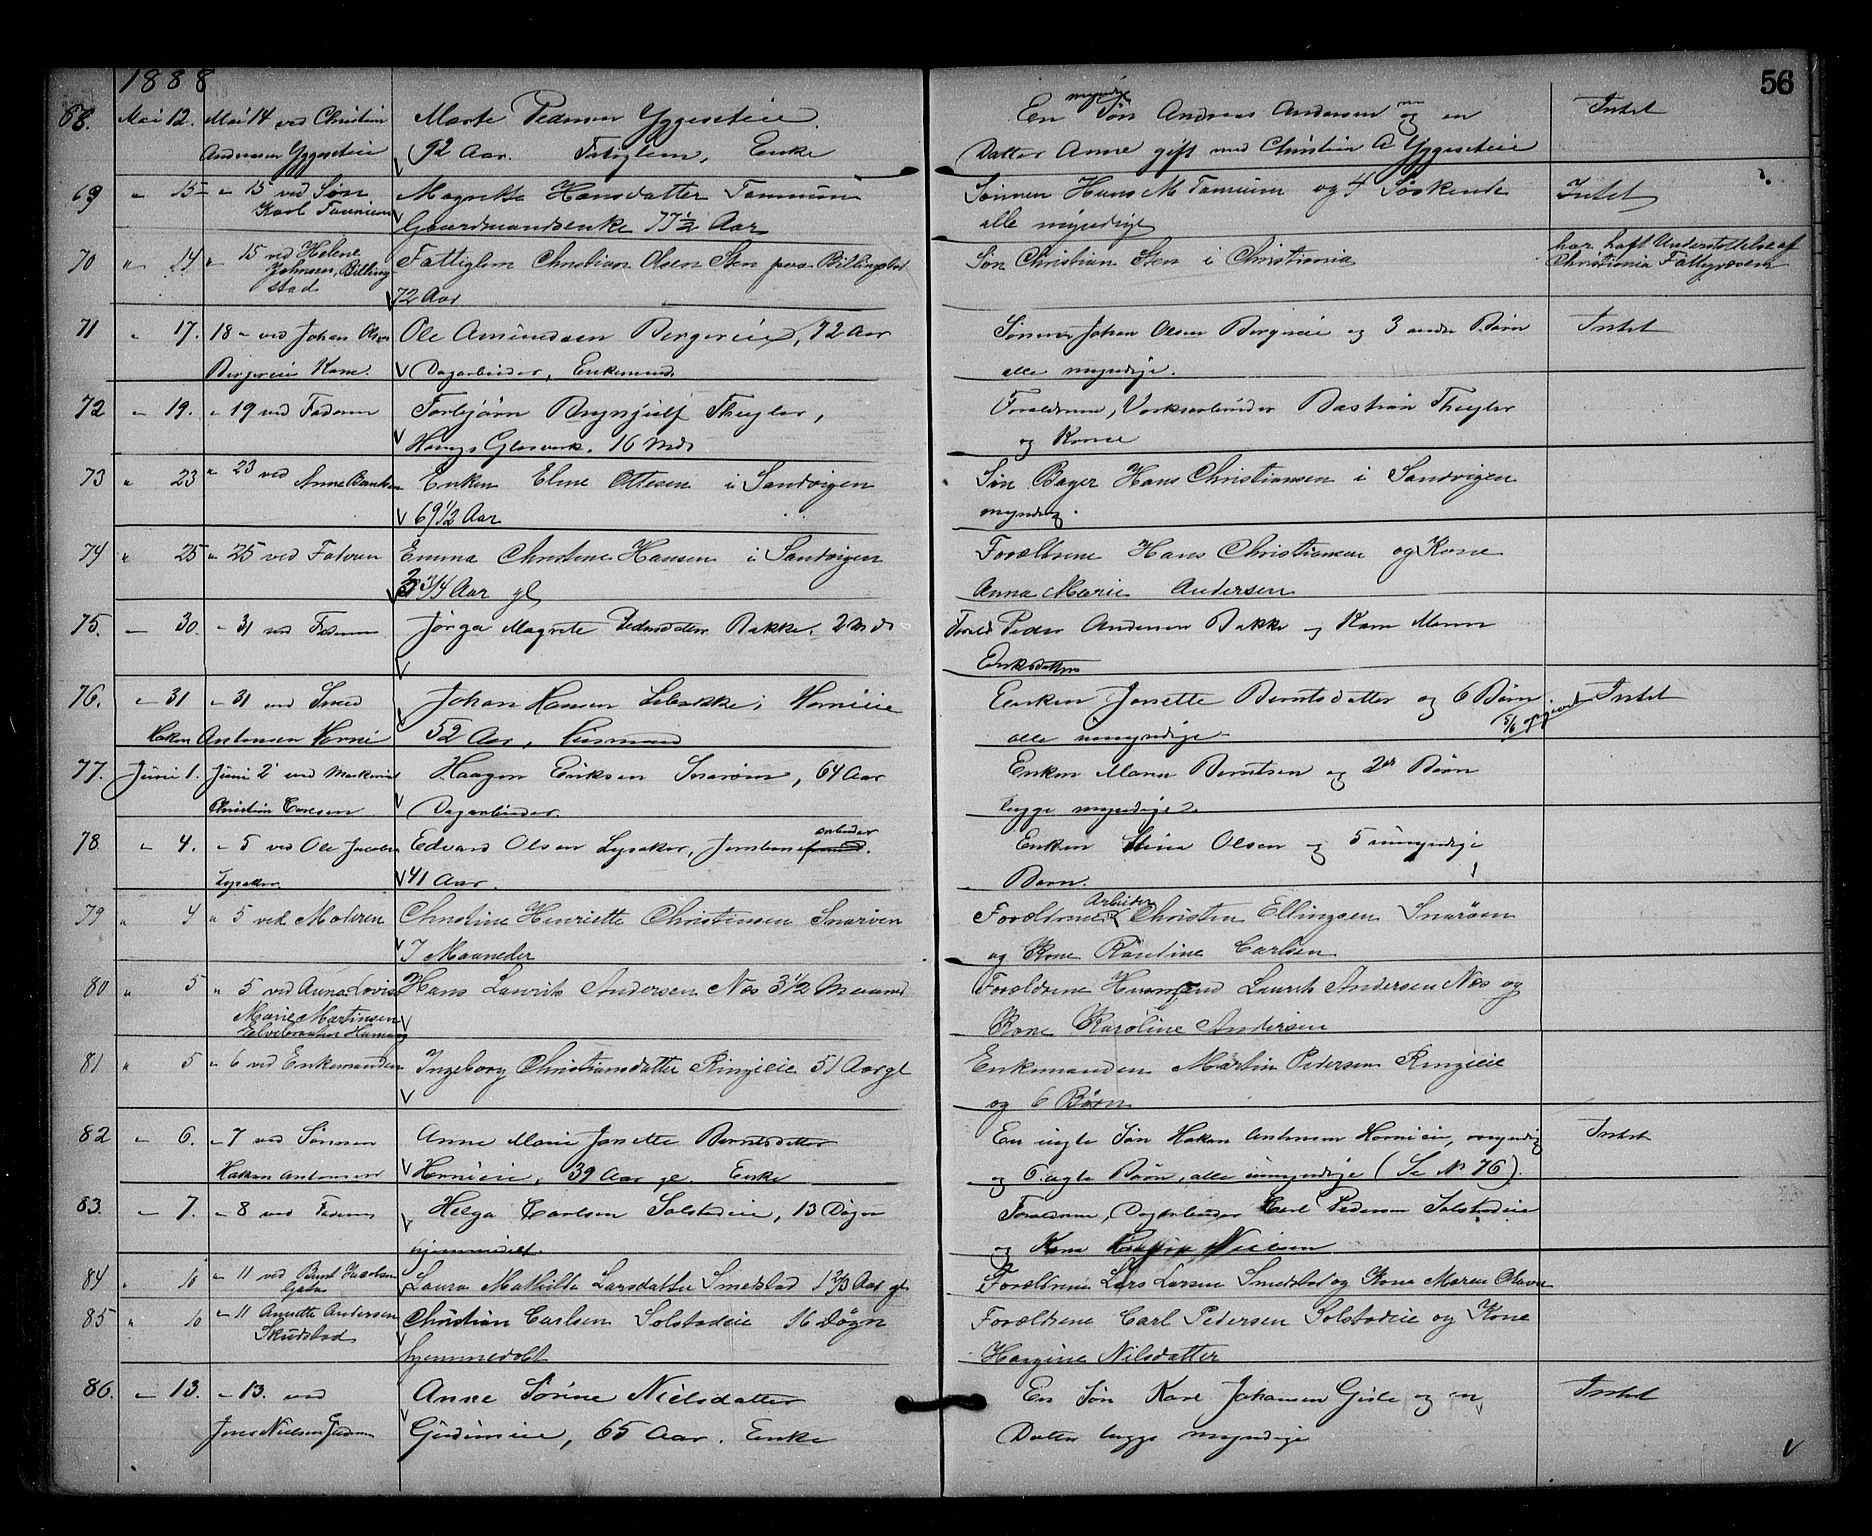 1888
56
68. Mai 12. Mai 14 ved Christian Marte Pedersen Yggeseteie. En myndig Søn Andreas Andersen og en Intet
Andersen Yggeseteie 92 Aar. Fattiglem, Enke Datter Anne gift med Christian A Yggeseteie
69 " 15 " 15 ved Søn Magrethe Hansdatter Sønnen Hans M og 4 Søskende Intet
Karl Gaardmandsenke 77 1/2 Aar alle myndige
70 " 14 " 15 ved Helene Fattiglem Christian Olsen Sten paa Billingstad Søn Christian Sten i Christiania har haft Understøttelse af
Johnsen, Billing Christiania Fattigvæsen
stad 72 Aar
71 " 17. 18 " ved Johan Olsen Ole Amundsen Bergereie, 72 Aar Sønnen Johan Olsen Bergereie og 3 andre Børn Intet
Bergereie Kone. Dagarbeider, Enkemand. alle myndige.
72 " 19. " 19 ved Faderen Torbjørn Brynjulf Thugler, Forældrene, Verksarbeider Bastian Thugler
Høvigs Glasværk. 16 Mdr og Kone
73 " 23 " 23 ved Anne Enken Eline Ottesen i Sandvigen Søn Bager Hans Christiansen i Sandvigen
69 1/2 Aar myndig.
74 " 25 " 25 ved Faderen Emma Christine Hansen i Sandvigen Forældrene Hans Christiansen og Kone
3/4 Aar gl Anna Marie Andersen
75. " 30. " 31 ved Faderen Jørga Magrete Pedersdatter Bakke. 2 Mdr Foræld Peder Andersen Bakke og Kone Maren
Eriksdatter
76. " 31 " 31 ved Smed Johan Hansen i Hornieie Enken Janette Berntsdatter og 6 Børn Intet
Haken Antonsen Horni 52 Aar, Husmand alle umyndige. 5/6 opgivet
77. Juni 1. Juni 2 ved Haagen Eriksen Snarøen, 64 Aar Enken Maren Berntsen og 2de Børn
Christian Carlsen Dagarbeider. begge myndige.
78 " 4. " 5 ved Ole Jacobsen Edvard Olsen Lysaker, Jernbanearbeider. Enken Stina Olsen og 5 umyndige
Lysaker. 41 Aar. Børn.
79 " 4 " 5 ved Moderen Christine Henriette Christensen Snarøen Forældrene Arbeider Christen Ellingsen Snarøen
7 Maaneder og Kone Karoline Carlsen
80 " 5 " 5 ved Anna Lovise Hans Laurits Andersen Næs 3 1/2 Maaned Forældrene Husmand Laurits Andersen Næs og
Marie Martinsen Kone Karoline Andersen
81 " 5 " 6 ved Enkemanden Ingeborg Christiansdatter Ringieie 51 Aar gl Enkemanden Martin Pedersen Ringieie
og 6 Børn
82 " 6. " 7 ved Sønnen Anne Marie Janette Berntsdatter En uægte Søn Haken Antonsen Hornieie, myndig Intet
Haken Antonsen Hornieie, 39 Aar gl. Enke og 6 ægte Børn, alle umyndige (Se No 76).
83. " 7. " 8 ved Faderen Helga Carlsen Solstadeie, 13 Døgn Forældrene, Dagarbeider Carl Pedersen Solstadeie
hjemmedøbt. og Kone Nielsen
84 " 10 " 11 ved Bernt Jacobsen Laura Mathilde Larsdatter Smedstad 1 2/3 Aar gl Forældrene Lars Larsen Smedstad og Kone Maren Olava
85 " 10 " 11 Annette Andersen Christian Carlsen Solstadeie 16 Døgn Forældrene Carl Pedersen Solstadeie og Kone
Skudstad hjemmedøbt Hargine Nilsdatter
86. " 13. " 13. ved Anne Sørine Nielsdatter En Søn Karl Johansen Gisle og en Intet
Jens Nielsen 65 Aar. Enke Datter begge myndige